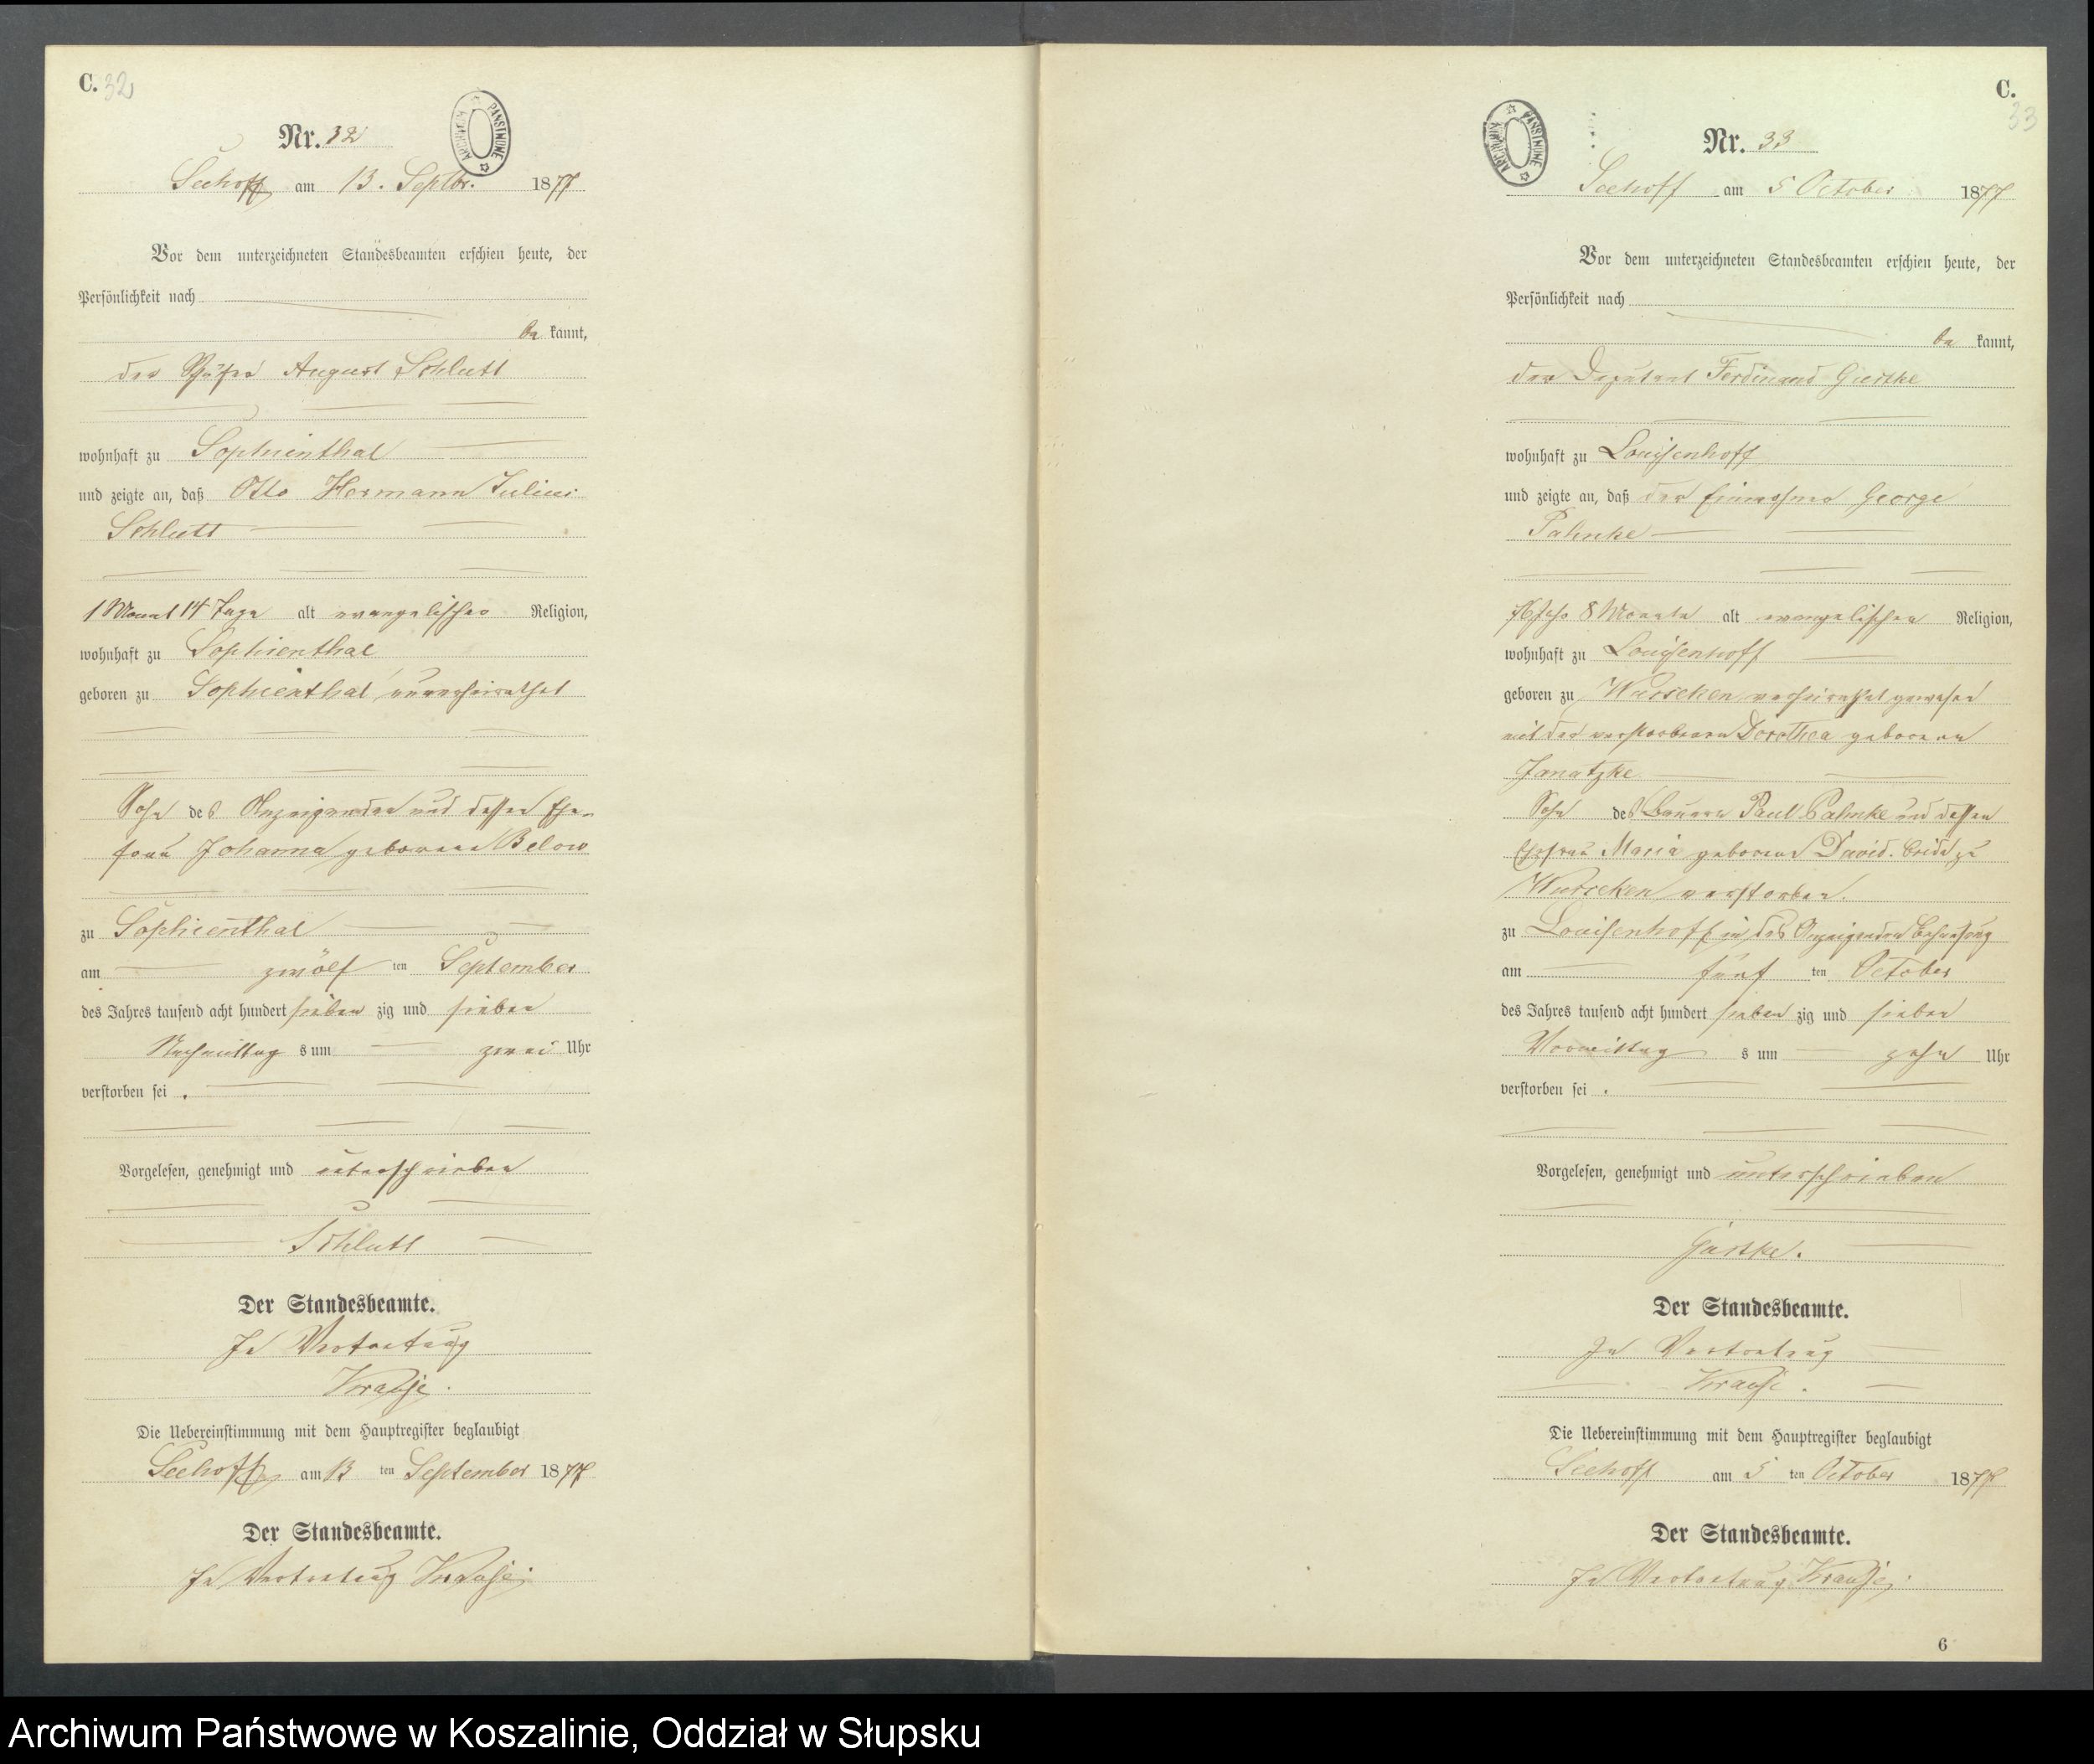 C. 32
ARCHIWUM PAŃSTWOWE
Nr. 32
Seehoff am 13. Septbr. 1877
Vor dem unterzeichneten Standesbeamten erschien heute, der
Persönlichkeit nach
be kannt,
der Schäfer August Schlutt
wohnhaft zu Sophienthal
und zeigte an, daß Otto Hermann Julius
Schlutt
1 Monat 14 Tage alt evangelischer Religion,
wohnhaft zu Sophienthal
geboren zu Sophienthal, unverheirathet
Sohn des Anzeigenden und dessen Ehe-
frau Johanna geborene Below
zu Sophienthal
am zwölf ten September
des Jahres tausend acht hundert sieben zig und sieben
Nachmittag s um zwei Uhr
verstorben sei.
Vorgelesen, genehmigt und unterschrieben
Schlutt
Der Standesbeamte.
In Vertretung
Krause.
Die Uebereinstimmung mit dem Hauptregister beglaubigt
Seehoff am 13 ten September 1877
Der Standesbeamte.
In Vertretung Krause.
C.
33
ARCHIWUM PAŃSTWOWE
Nr. 33
Seehoff am 5 October 1877
Vor dem unterzeichneten Standesbeamten erschien heute, der
Persönlichkeit nach
be kannt,
der Deputant Ferdinand Gürtke
wohnhaft zu Louisenhoff
und zeigte an, daß der Einwohner George
Pahnke
76 Jahr 8 Monate alt evangelischer Religion,
wohnhaft zu Louisenhoff
geboren zu Wusseken verheirathet gewesen
mit der verstorbenen Dorothea geborenen
Janatzke
Sohn des Bauern Paul Pahnke und dessen
Ehefrau Maria geborene David. beide zu
Wusseken verstorben.
zu Louisenhoff in des Anzeigenden Behausung
am fünf ten October
des Jahres tausend acht hundert sieben zig und sieben
Vormittag s um zehn Uhr
verstorben sei.
Vorgelesen, genehmigt und unterschrieben
Gürtke.
Der Standesbeamte.
In Vertretung
Krause.
Die Uebereinstimmung mit dem Hauptregister beglaubigt
Seehoff am 5 ten October 1877
Der Standesbeamte.
In Vertretung Krause.
6
Archiwum Państwowe w Koszalinie, Oddział w Słupsku